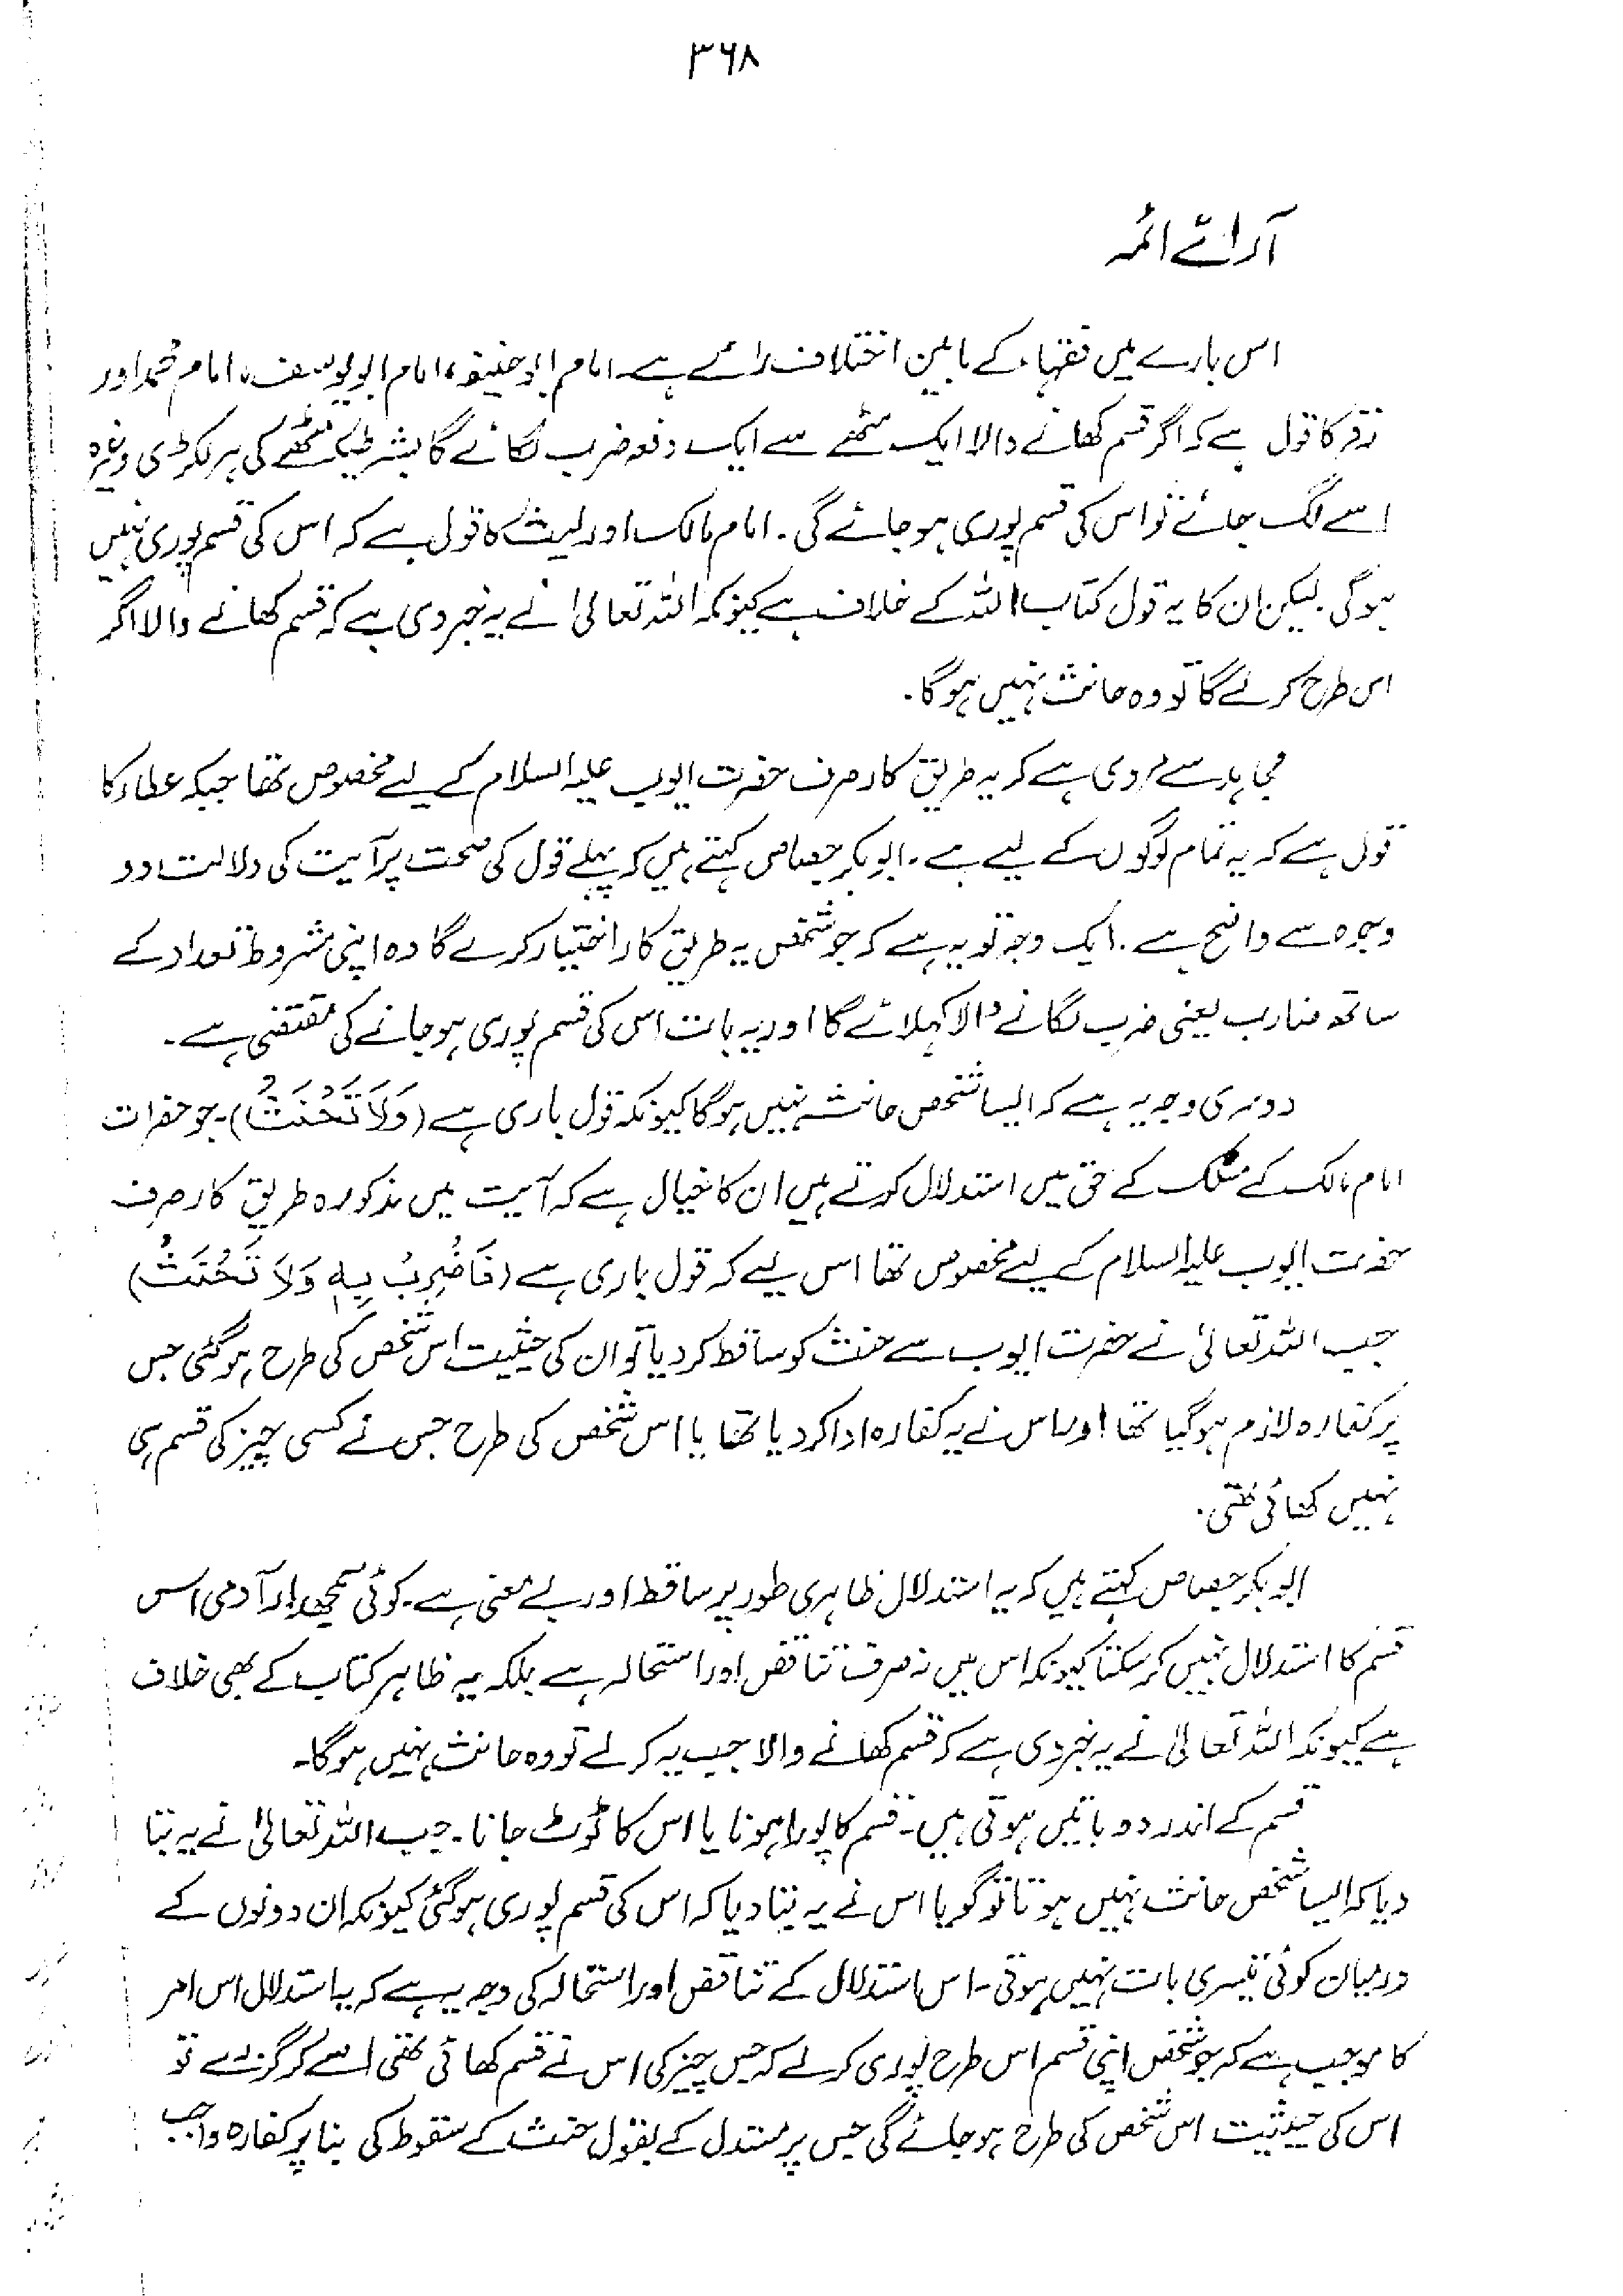 ۳۶۸
آرائے ائمہ
اس بارے میں فقہاء کے مابین اختلاف رائے ہے۔ امام ابوحنیفہ، امام ابویوسف، امام محمد اور
زفر کا قول ہے کہ اگر قسم کھانے والا ایک مٹھے سے ایک دفعہ ضرب لگائے گا بشرطیکہ مٹھے کی ہر لکڑی وغیرہ
اسے لگ جائے تو اس کی قسم پوری ہو جائے گی۔ امام مالک اور لیث کا قول ہے کہ اس کی قسم پوری نہیں
ہوگی لیکن ان کا یہ قول کتاب اللہ کے خلاف ہے کیونکہ اللہ تعالیٰ نے یہ خبر دی ہے کہ قسم کھانے والا اگر
اس طرح کرلے گا تو وہ حانث نہیں ہوگا۔
مجاہد سے مروی ہے کہ یہ طریق کار صرف حضرت ایوب علیہ السلام کے لیے مخصوص تھا جبکہ عطاء کا
قول ہے کہ یہ تمام لوگوں کے لیے ہے۔ ابوبکر جصاص کہتے ہیں کہ پہلے قول کی صحت پر آیت کی دلالت دو
وجوہ سے واضح ہے۔ ایک وجہ تو یہ ہے کہ جو شخص یہ طریق کار اختیار کرے گا وہ اپنی مشروط تعداد کے
ساتھ ضارب یعنی ضرب لگانے والا کہلائے گا اور یہ بات اس کی قسم پوری ہو جانے کی مقتضی ہے۔
دوسری وجہ یہ ہے کہ ایسا شخص حانث نہیں ہوگا کیونکہ قول باری ہے (وَلَا تَحْنَثْ)۔ جو حضرات
امام مالک کے مسلک کے حق میں استدلال کرتے ہیں ان کا خیال ہے کہ آیت میں مذکورہ طریق کار صرف
حضرت ایوب علیہ السلام کے لیے مخصوص تھا اس لیے کہ قول باری ہے (فَاضْرِبْ بِهٖ وَلَا تَحْنَثْ)
جب اللہ تعالیٰ نے حضرت ایوب سے حنث کو ساقط کر دیا تو ان کی حیثیت اس شخص کی طرح ہوگئی جس
پر کفارہ لازم ہوگیا تھا اور اس نے یہ کفارہ ادا کر دیا تھا یا اس شخص کی طرح جس نے کسی چیز کی قسم ہی
نہیں کھائی تھی۔
ابوبکر جصاص کہتے ہیں کہ یہ استدلال ظاہری طور پر ساقط اور بے معنی ہے۔ کوئی سمجھدار آدمی اس
قسم کا استدلال نہیں کرسکتا کیونکہ اس میں نہ صرف تناقض اور استحالہ ہے بلکہ یہ ظاہر کتاب کے بھی خلاف
ہے کیونکہ اللہ تعالیٰ نے یہ خبر دی ہے کہ قسم کھانے والا جب یہ کرلے تو وہ حانث نہیں ہوگا۔
قسم کے اندر دو باتیں ہوتی ہیں۔ قسم کا پورا ہونا یا اس کا ٹوٹ جانا۔ جب اللہ تعالیٰ نے یہ بتا
دیا کہ ایسا شخص حانث نہیں ہوتا تو گویا اس نے یہ بتا دیا کہ اس کی قسم پوری ہوگئی کیونکہ ان دونوں کے
درمیان کوئی تیسری بات نہیں ہوتی۔ اس استدلال کے تناقض اور استحالہ کی وجہ یہ ہے کہ یہ استدلال اس امر
کا موجب ہے کہ جو شخص اپنی قسم اس طرح پوری کرلے کہ جس چیز کی اس نے قسم کھائی تھی اسے کر گزرے تو
اس کی حیثیت اس شخص کی طرح ہو جائے گی جس پر مستدل کے بقول حنث کے سقوط کی بنا پر کفارہ واجب